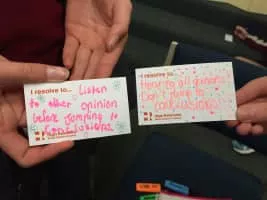 I resolve to...
Listen
to other opinion
before jumping to
conclusions
I resolve to...
Hearing all opinions
Don't jump to
conclusions!